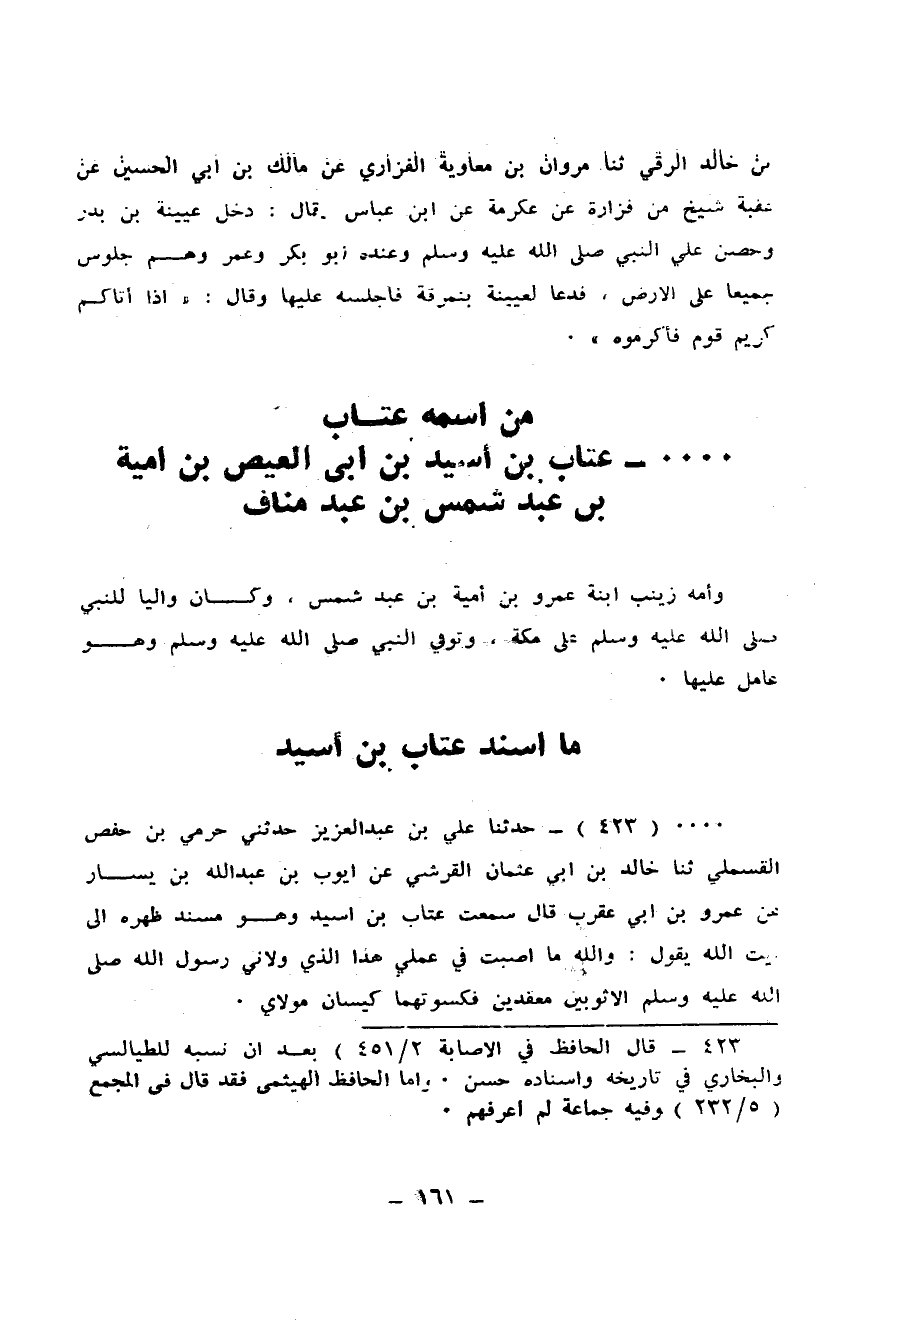 بن خالد الرقي ثنا مروان بن معاوية الفزاري عن مالك بن أبي الحسين عن
عقبة شيخ من فزارة عن عكرمة عن ابن عباس قال : دخل عيينة بن بدر
وحصن علي النبي صلى الله عليه وسلم وعنده أبو بكر وعمر وهـــم جلوس
جميعا على الارض ، فدعا لعيينة بنمرقة فاجلسه عليها وقال : « اذا أتاكـم
كريم قوم فأكرموه » ٠
من اسمه عتــاب
٠٠٠٠ ــ عتاب بن أسيد بن ابى العيص بن امية
بن عبد شمس بن عبد مناف
وأمه زينب ابنة عمرو بن أمية بن عبد شمس ، وكـــان واليا للنبي
صلى الله عليه وسلم على مكة ، وتوفي النبي صلى الله عليه وسلم وهـــو
عامل عليها ٠
ما اسند عتاب بن أسيد
٠٠٠٠ ( ٤٢٣ ) ــ حدثنا علي بن عبدالعزيز حدثني حرمي بن حفص
القسملي ثنا خالد بن ابي عثمان القرشي عن ايوب بن عبدالله بن يســـار
عن عمرو بن ابي عقرب قال سمعت عتاب بن اسيد وهـــو مسند ظهره الى
بيت الله يقول : والله ما اصبت في عملي هذا الذي ولاني رسول الله صلى
الله عليه وسلم الاثوبين معقدين فكسوتهما كيسان مولاي ٠
٤٢٣ ــ قال الحافظ في الاصابة ٤٥١/٢ ) بعــد ان نسبه للطيالسي
والبخاري في تاريخه واسناده حسن ٠ واما الحافظ الهيثمى فقد قال فى المجمع
( ٢٣٢/٥ ) وفيه جماعة لم أعرفهم ٠
ــ ١٦١ ــ